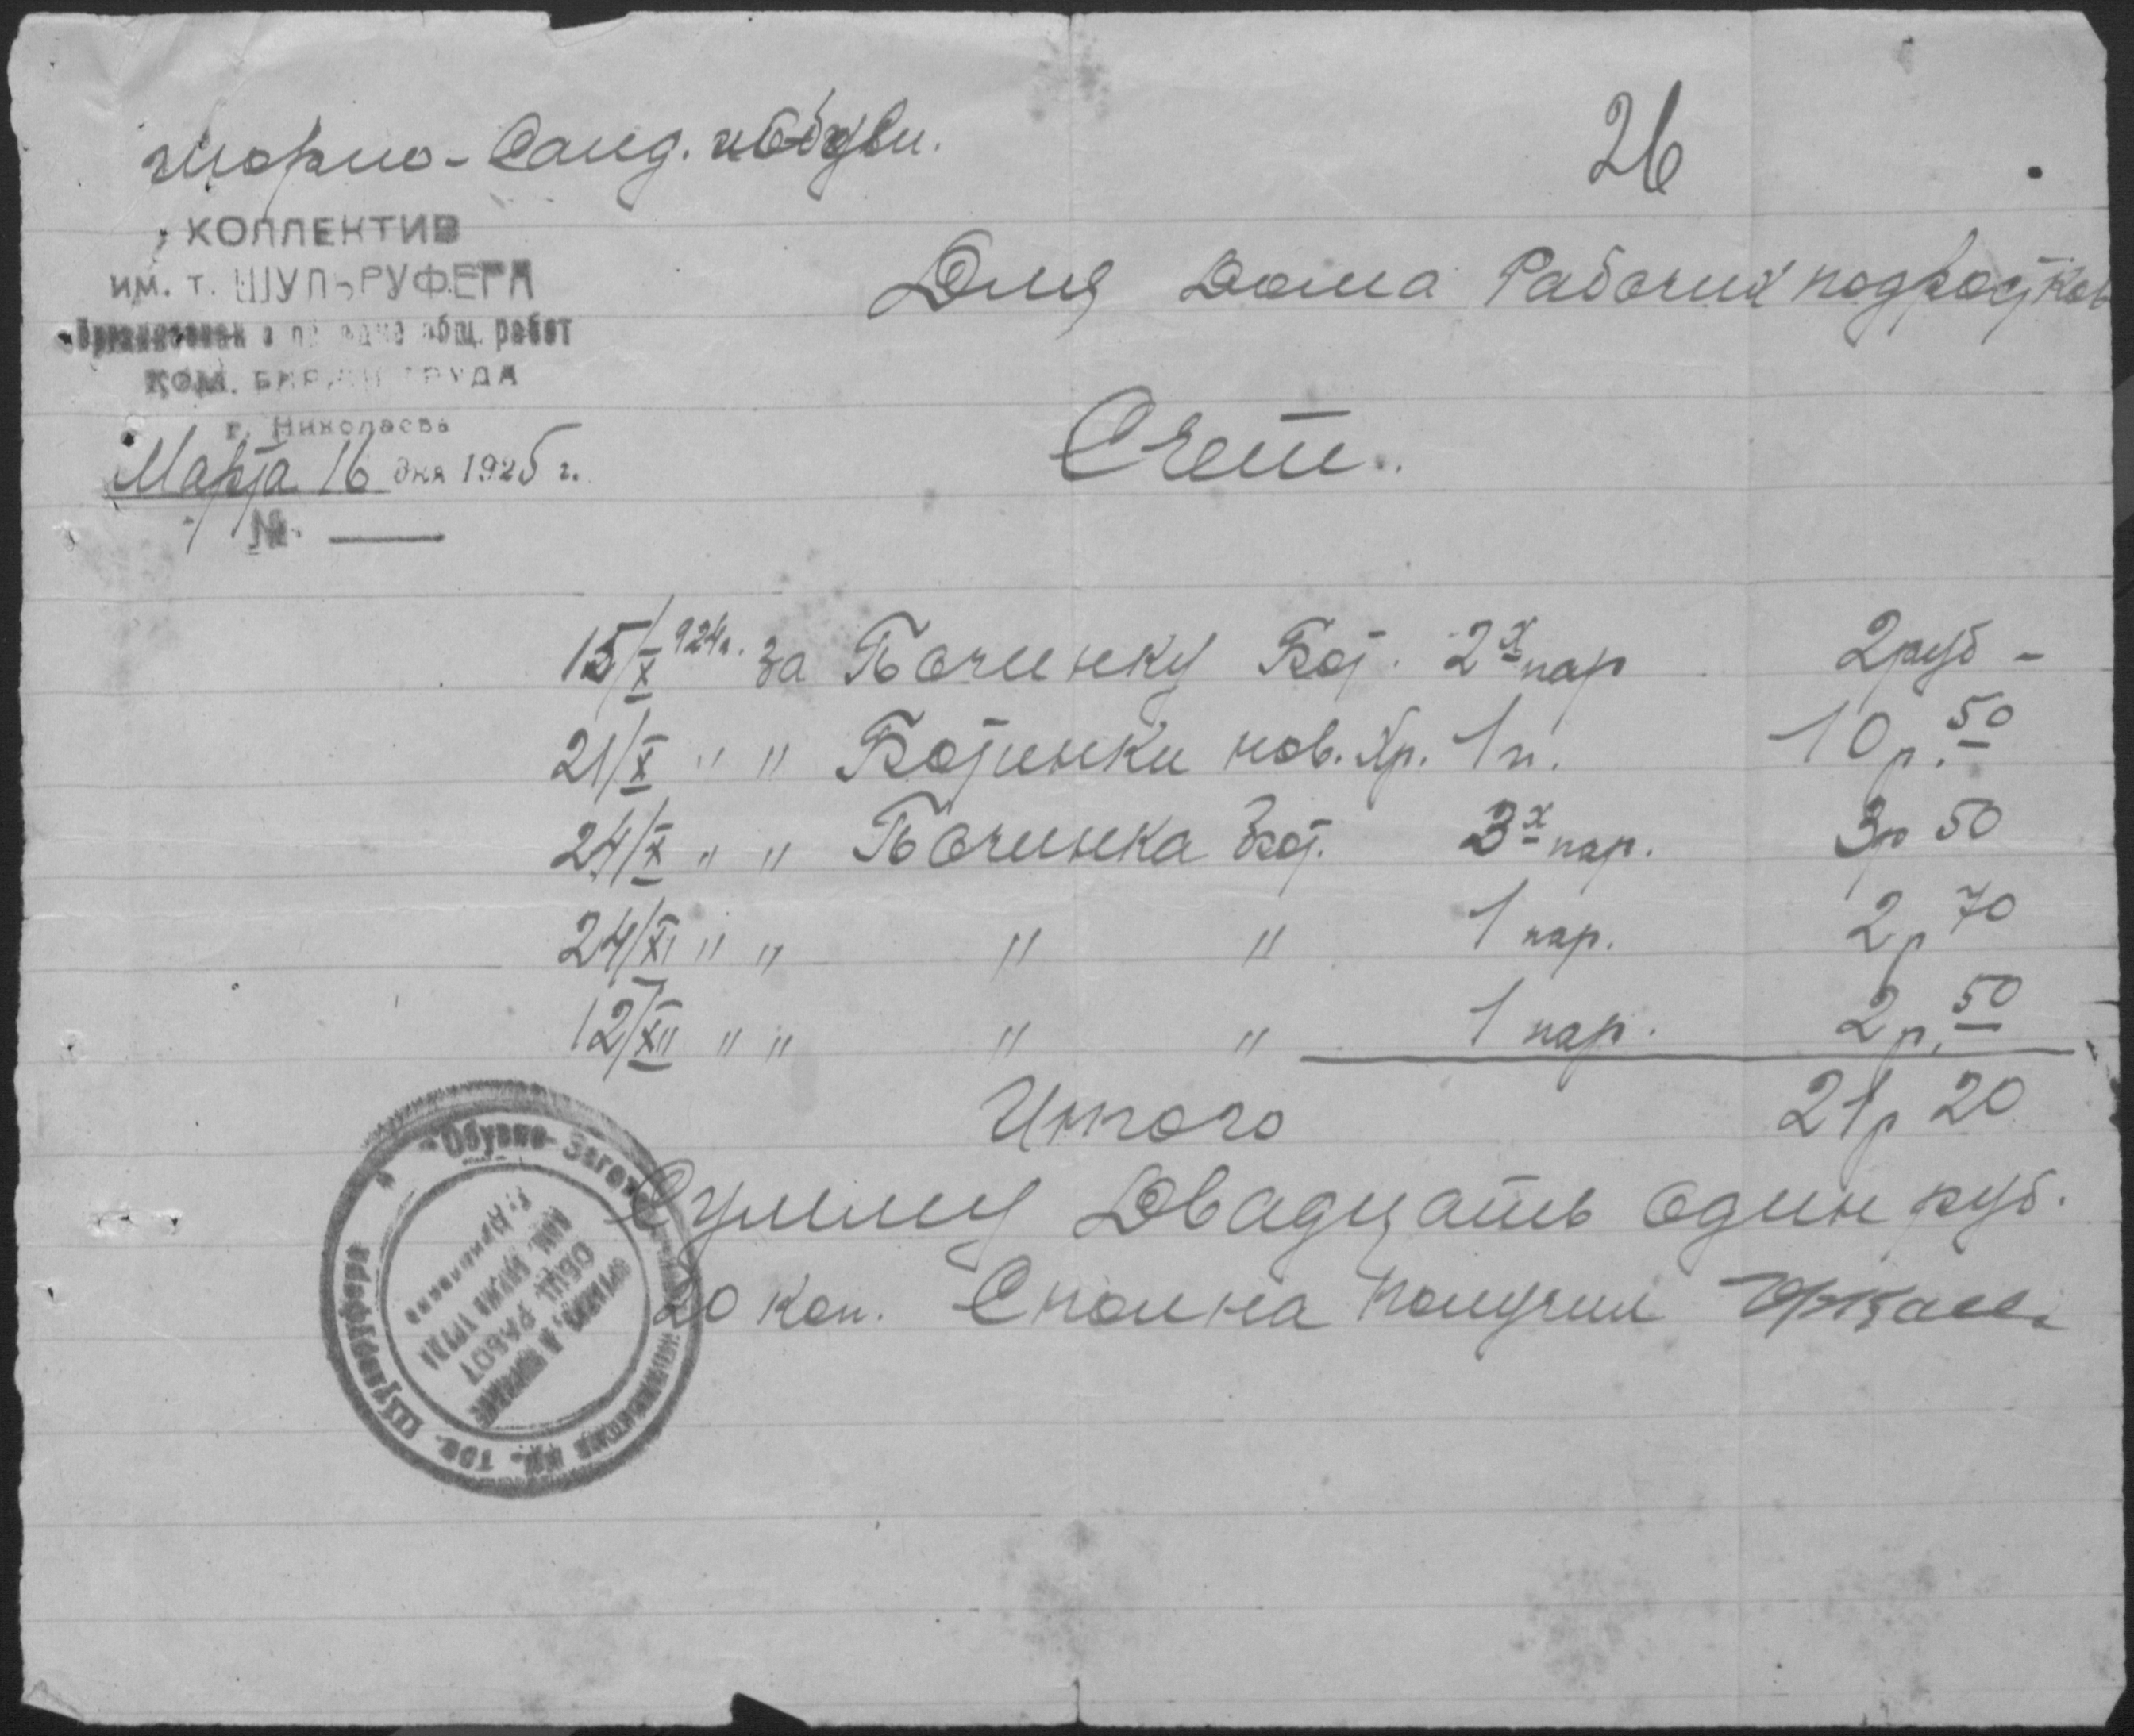 Шорно-Санд. и обуви.
26
КОЛЛЕКТИВ
им. т. ШУЛЬРУФЕРА
Организован в порядке общ. работ
КОМ. БИРЖИ ТРУДА
г. Николаева
Марта 16 дня 1925 г.
№. —
Для Дома Рабочих подростков
Счет.
15/X 924г. за Починку Бот. 2х пар 2 руб -
21/X " " Ботинки нов. Хр. 1 п. 10 р. 50
24/X " " Починка Бот. 3х пар. 3р 50
24/XI " " " " 1 пар. 2р 70
12/XII " " " " 1 пар. 2р. 50
Итого 21р 20
Сумму Двадцать один руб.
20 коп. Сполна получил
Обувно-Загот коллектив им. тов. Шульруфера
ОБЩ. РАБОТ
г. Николаева